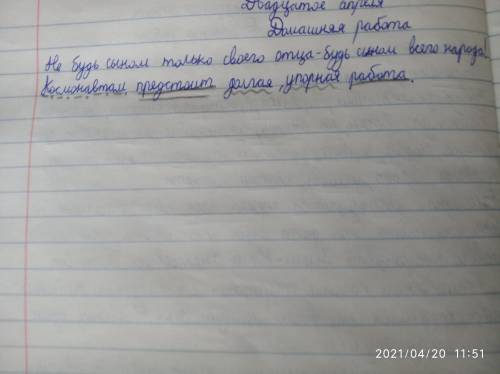 Двадцатое апреля
Домашняя работа
Не будь сыном только своего отца-будь сыном всего народа.
Космонавтам предстоит долгая, упорная работа.
2021/04/20 11:51